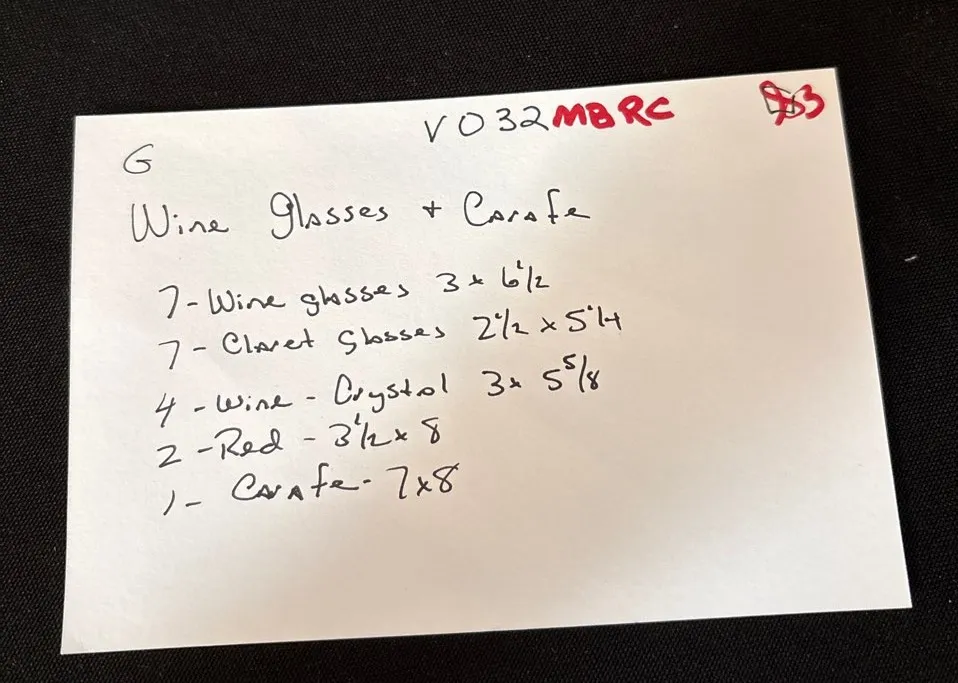 V032 MBRC
G
Wine Glasses + Carafe
7 - Wine glasses 3 x 6 1/2
7 - Claret Glasses 2 1/2 x 5 1/4
4 - Wine - Crystal 3 x 5 5/8
2 - Red - 3 1/2 x 8
1 - Carafe - 7x8